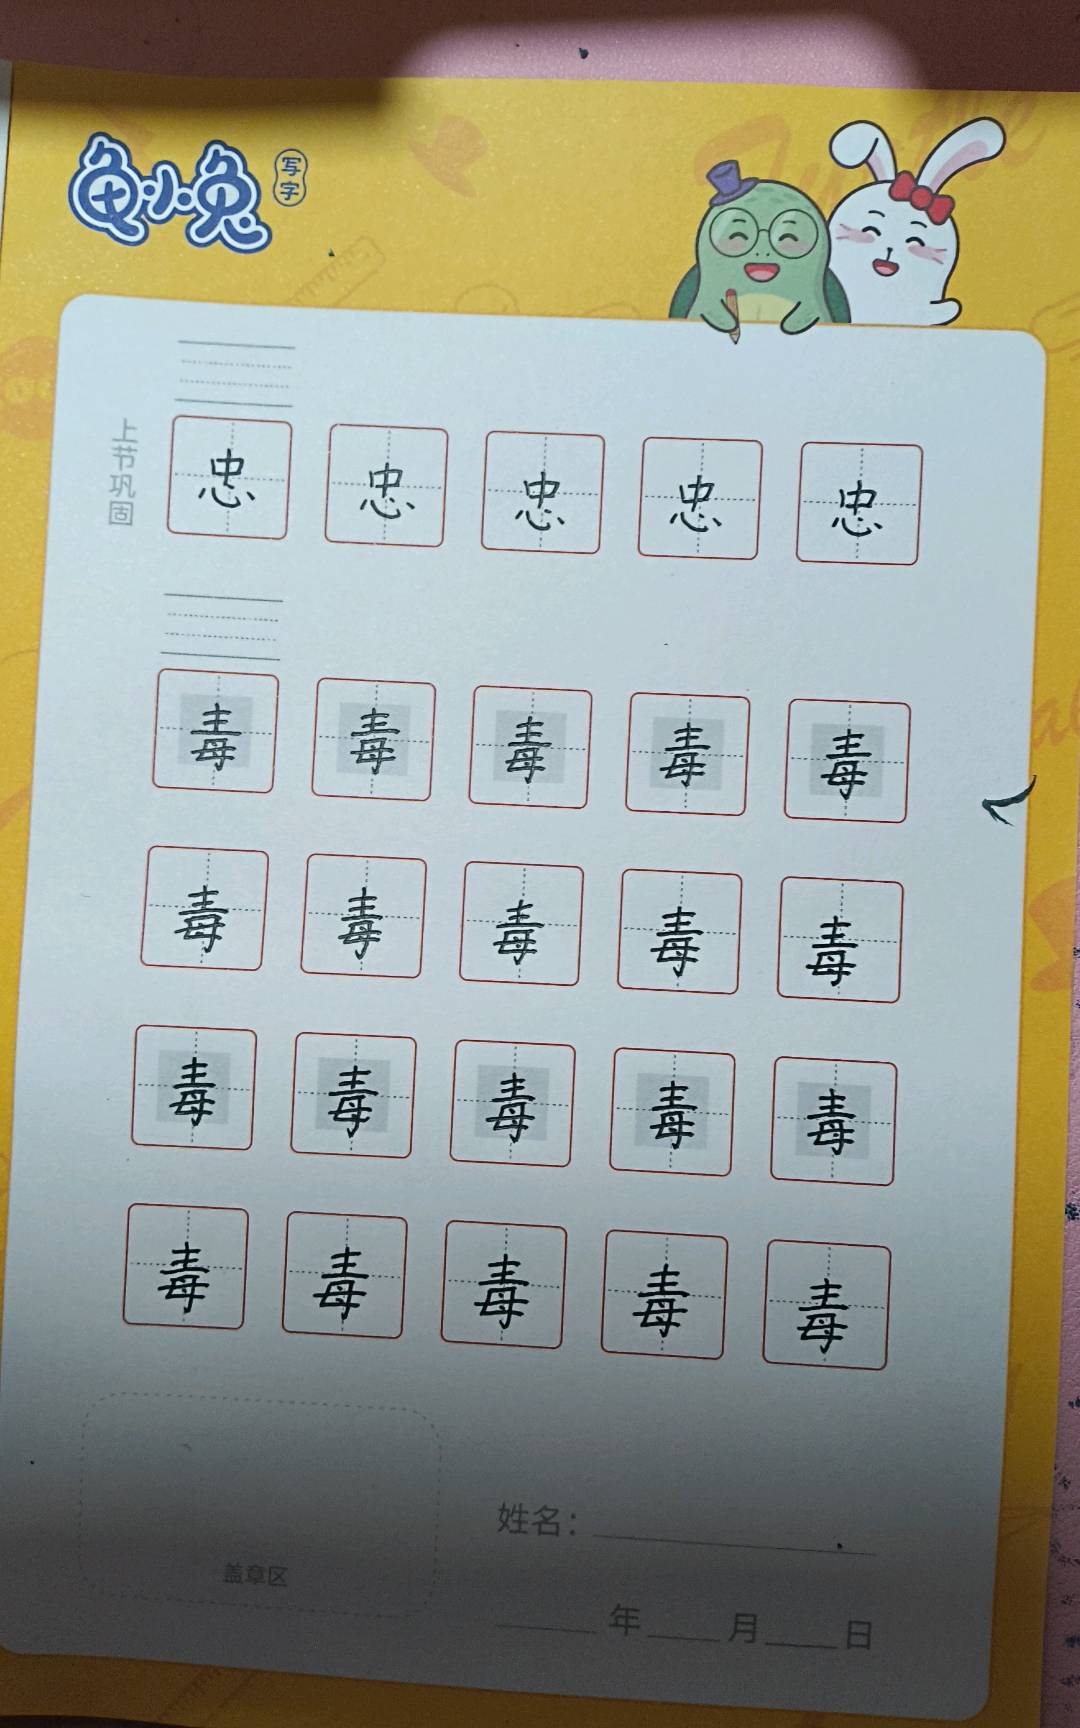 龟小兔写字
上节巩固
忠 忠 忠 忠 忠
毒 毒 毒 毒 毒
毒 毒 毒 毒 毒
毒 毒 毒 毒 毒
毒 毒 毒 毒 毒
姓名：
盖章区
年 月 日